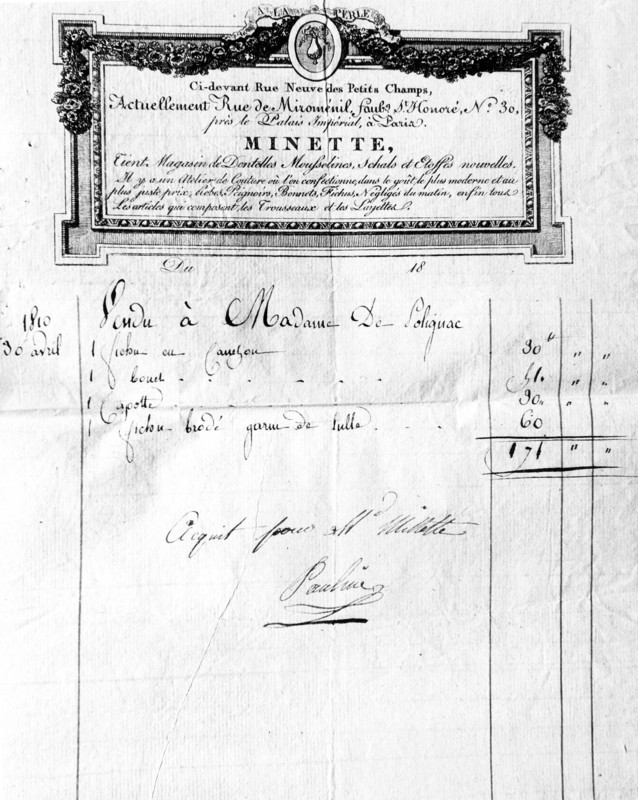 A LA PERLE
Ci-devant Rue Neuve des Petits Champs,
Actuellement Rue de Miroménil, faubg. St. Honoré, No. 30,
près le Palais Impérial, à Paris.
MINETTE,
Tient Magasin de Dentelles Mousselines, Schals et Etoffes nouvelles.
Il y a un Atelier de Couture où l'on confectionne, dans le goût le plus moderne et au
plus juste prix, Robes, Peignoirs, Bonnets, Fichus, Négligés du matin, enfin tous
Les articles qui composent les Trousseaux et les Layettes.
Du 18
1810 Vendu à Madame De Polignac
30 avril 1 fichu en 30 " "
1 51. " "
1 Capotte 30 " "
1 fichu brodé garni de tulle 60
171 " "
Acquit pour Md Minette
Pauline